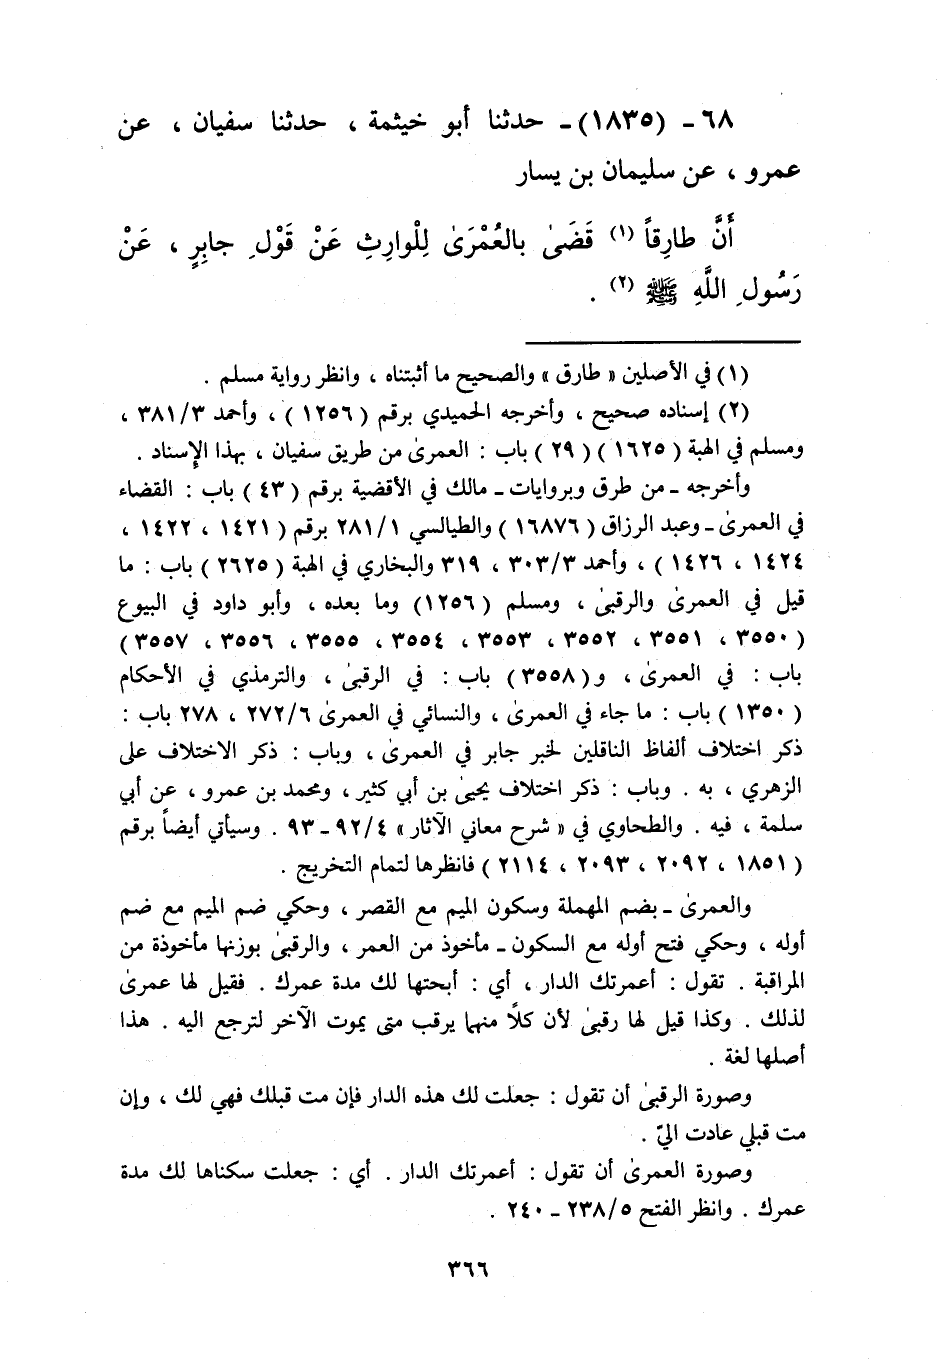 ٦٨ - (١٨٣٥) - حدثنا أبو خيثمة ، حدثنا سفيان ، عن
عمرو ، عن سليمان بن يسار
أَنَّ طارِقاً (١) قَضَىٰ بالعُمْرَىٰ لِلْوارِثِ عَنْ قَوْلِ جابِرٍ ، عَنْ
رَسُولِ اللَّهِ ﷺ (٢) .
(١) في الأصلين « طارق » والصحيح ما أثبتناه ، وانظر رواية مسلم .
(٢) إسناده صحيح ، وأخرجه الحميدي برقم ( ١٢٥٦ ) ، وأحمد ٣٨١/٣ ،
ومسلم في الهبة ( ١٦٢٥ ) ( ٢٩ ) باب : العمرىٰ من طريق سفيان ، بهذا الإسناد .
وأخرجه - من طرق وبروايات - مالك في الأقضية برقم ( ٤٣ ) باب : القضاء
في العمرىٰ - وعبد الرزاق ( ١٦٨٧٦ ) والطيالسي ٢٨١/١ برقم ( ١٤٢١ ، ١٤٢٢ ،
١٤٢٤ ، ١٤٢٦ ) ، وأحمد ٣٠٣/٣ ، ٣١٩ والبخاري في الهبة ( ٢٦٢٥ ) باب : ما
قيل في العمرىٰ والرقبىٰ ، ومسلم ( ١٢٥٦ ) وما بعده ، وأبو داود في البيوع
( ٣٥٥٠ ، ٣٥٥١ ، ٣٥٥٢ ، ٣٥٥٣ ، ٣٥٥٤ ، ٣٥٥٥ ، ٣٥٥٦ ، ٣٥٥٧ )
باب : في العمرىٰ ، و ( ٣٥٥٨ ) باب : في الرقبىٰ ، والترمذي في الأحكام
( ١٣٥٠ ) باب : ما جاء في العمرىٰ ، والنسائي في العمرىٰ ٢٧٢/٦ ، ٢٧٨ باب :
ذكر اختلاف ألفاظ الناقلين لخبر جابر في العمرىٰ ، وباب : ذكر الاختلاف على
الزهري ، به . وباب : ذكر اختلاف يحيىٰ بن أبي كثير ، ومحمد بن عمرو ، عن أبي
سلمة ، فيه . والطحاوي في « شرح معاني الآثار » ٩٢/٤ - ٩٣ . وسيأتي أيضاً برقم
( ١٨٥١ ، ٢٠٩٢ ، ٢٠٩٣ ، ٢١١٤ ) فانظرها لتمام التخريج .
والعمرىٰ - بضم المهملة وسكون الميم مع القصر ، وحكي ضم الميم مع ضم
أوله ، وحكي فتح أوله مع السكون - مأخوذ من العمر ، والرقبىٰ بوزنها مأخوذة من
المراقبة . تقول : أعمرتك الدار ، أي : أبحتها لك مدة عمرك . فقيل لها عمرىٰ
لذلك . وكذا قيل لها رقبىٰ لأن كلاً منهما يرقب متى يموت الآخر لترجع اليه . هذا
أصلها لغة .
وصورة الرقبىٰ أن تقول : جعلت لك هذه الدار فإن مت قبلك فهي لك ، وإن
مت قبلي عادت اليّ .
وصورة العمرىٰ أن تقول : أعمرتك الدار . أي : جعلت سكناها لك مدة
عمرك . وانظر الفتح ٢٣٨/٥ - ٢٤٠ .
٣٦٦